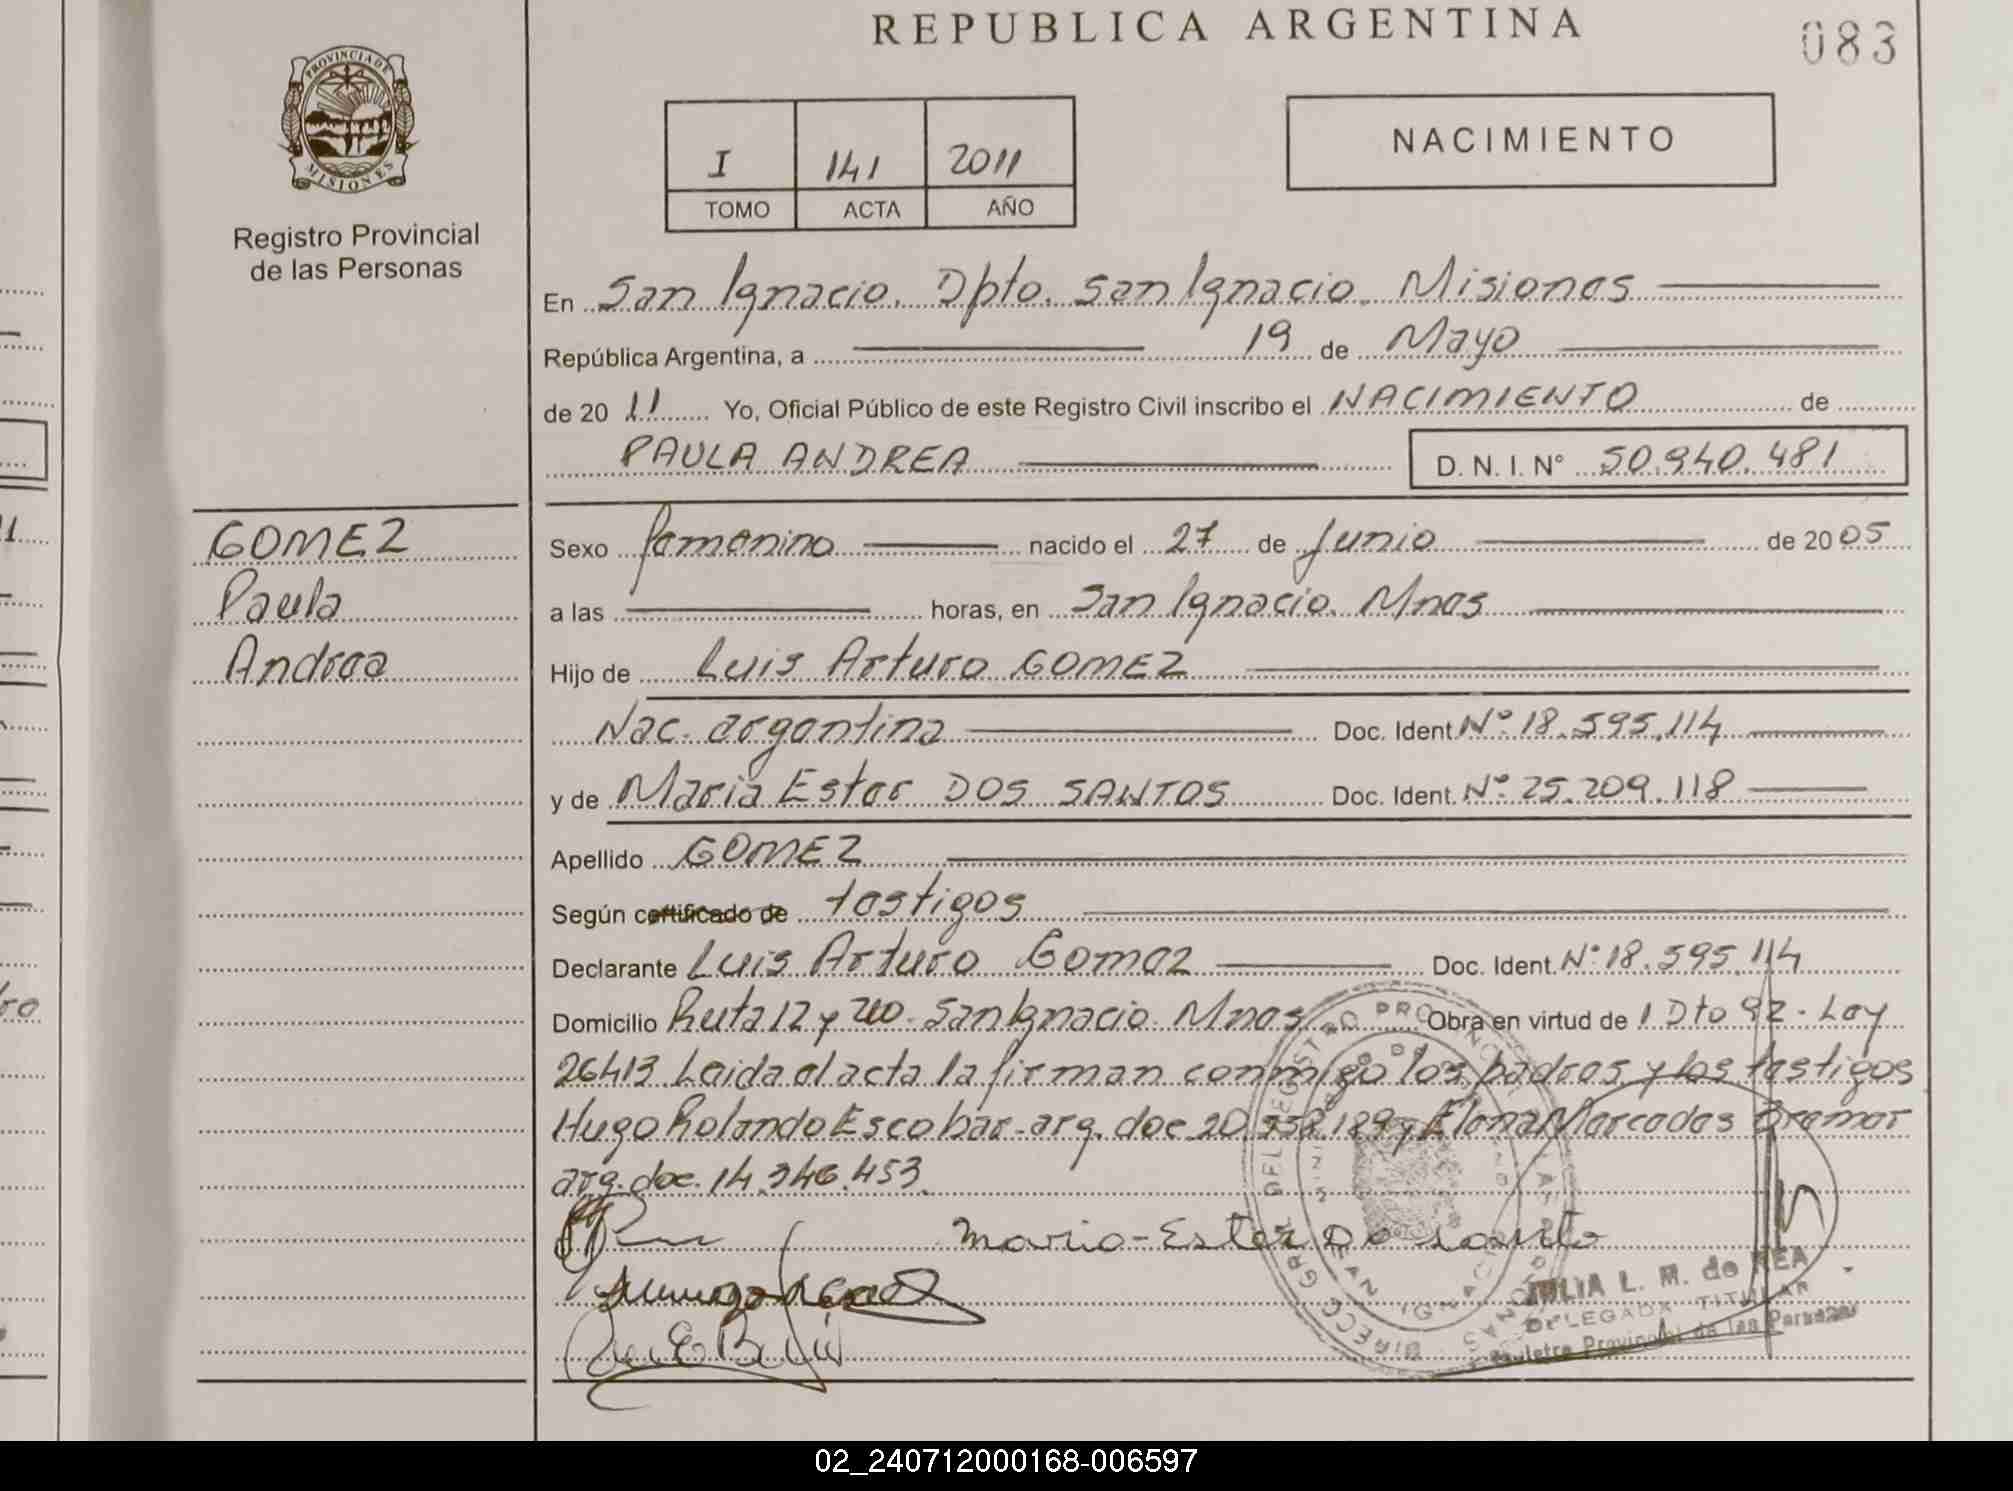 REPUBLICA ARGENTINA
083
PROVINCIA DE MISIONES
Registro Provincial
de las Personas
I 141 2011
TOMO ACTA AÑO
NACIMIENTO
En San Ignacio. Dpto. San Ignacio. Misiones
República Argentina, a 19 de Mayo
de 2011 Yo, Oficial Público de este Registro Civil inscribo el NACIMIENTO de
PAULA ANDREA D. N. I. N° 50.940.481
GOMEZ
Paula
Andrea
Sexo femenino nacido el 27 de Junio de 2005
a las horas, en San Ignacio. Mnes
Hijo de Luis Arturo GOMEZ
Nac. argentina Doc. Ident. N° 18.595.114
y de Maria Ester DOS SANTOS Doc. Ident. N° 25.209.118
Apellido GOMEZ
Según certificado de testigos
Declarante Luis Arturo Gomez Doc. Ident. N° 18.595.114
Domicilio Ruta 12 y San Ignacio. Mnes Obra en virtud de 1 Dto 92 - Ley
26413 Leida el acta la firman conmigo los padres y los testigos
Hugo Rolando Escobar - arg. doc. 20. .189 y Elena Mercedes
arg. doc. 14.346.453.
Maria-Ester Do santo
JULIA L. M. de REA
DELEGADA TITULAR
Registro Provincial de las Personas
02_240712000168-006597